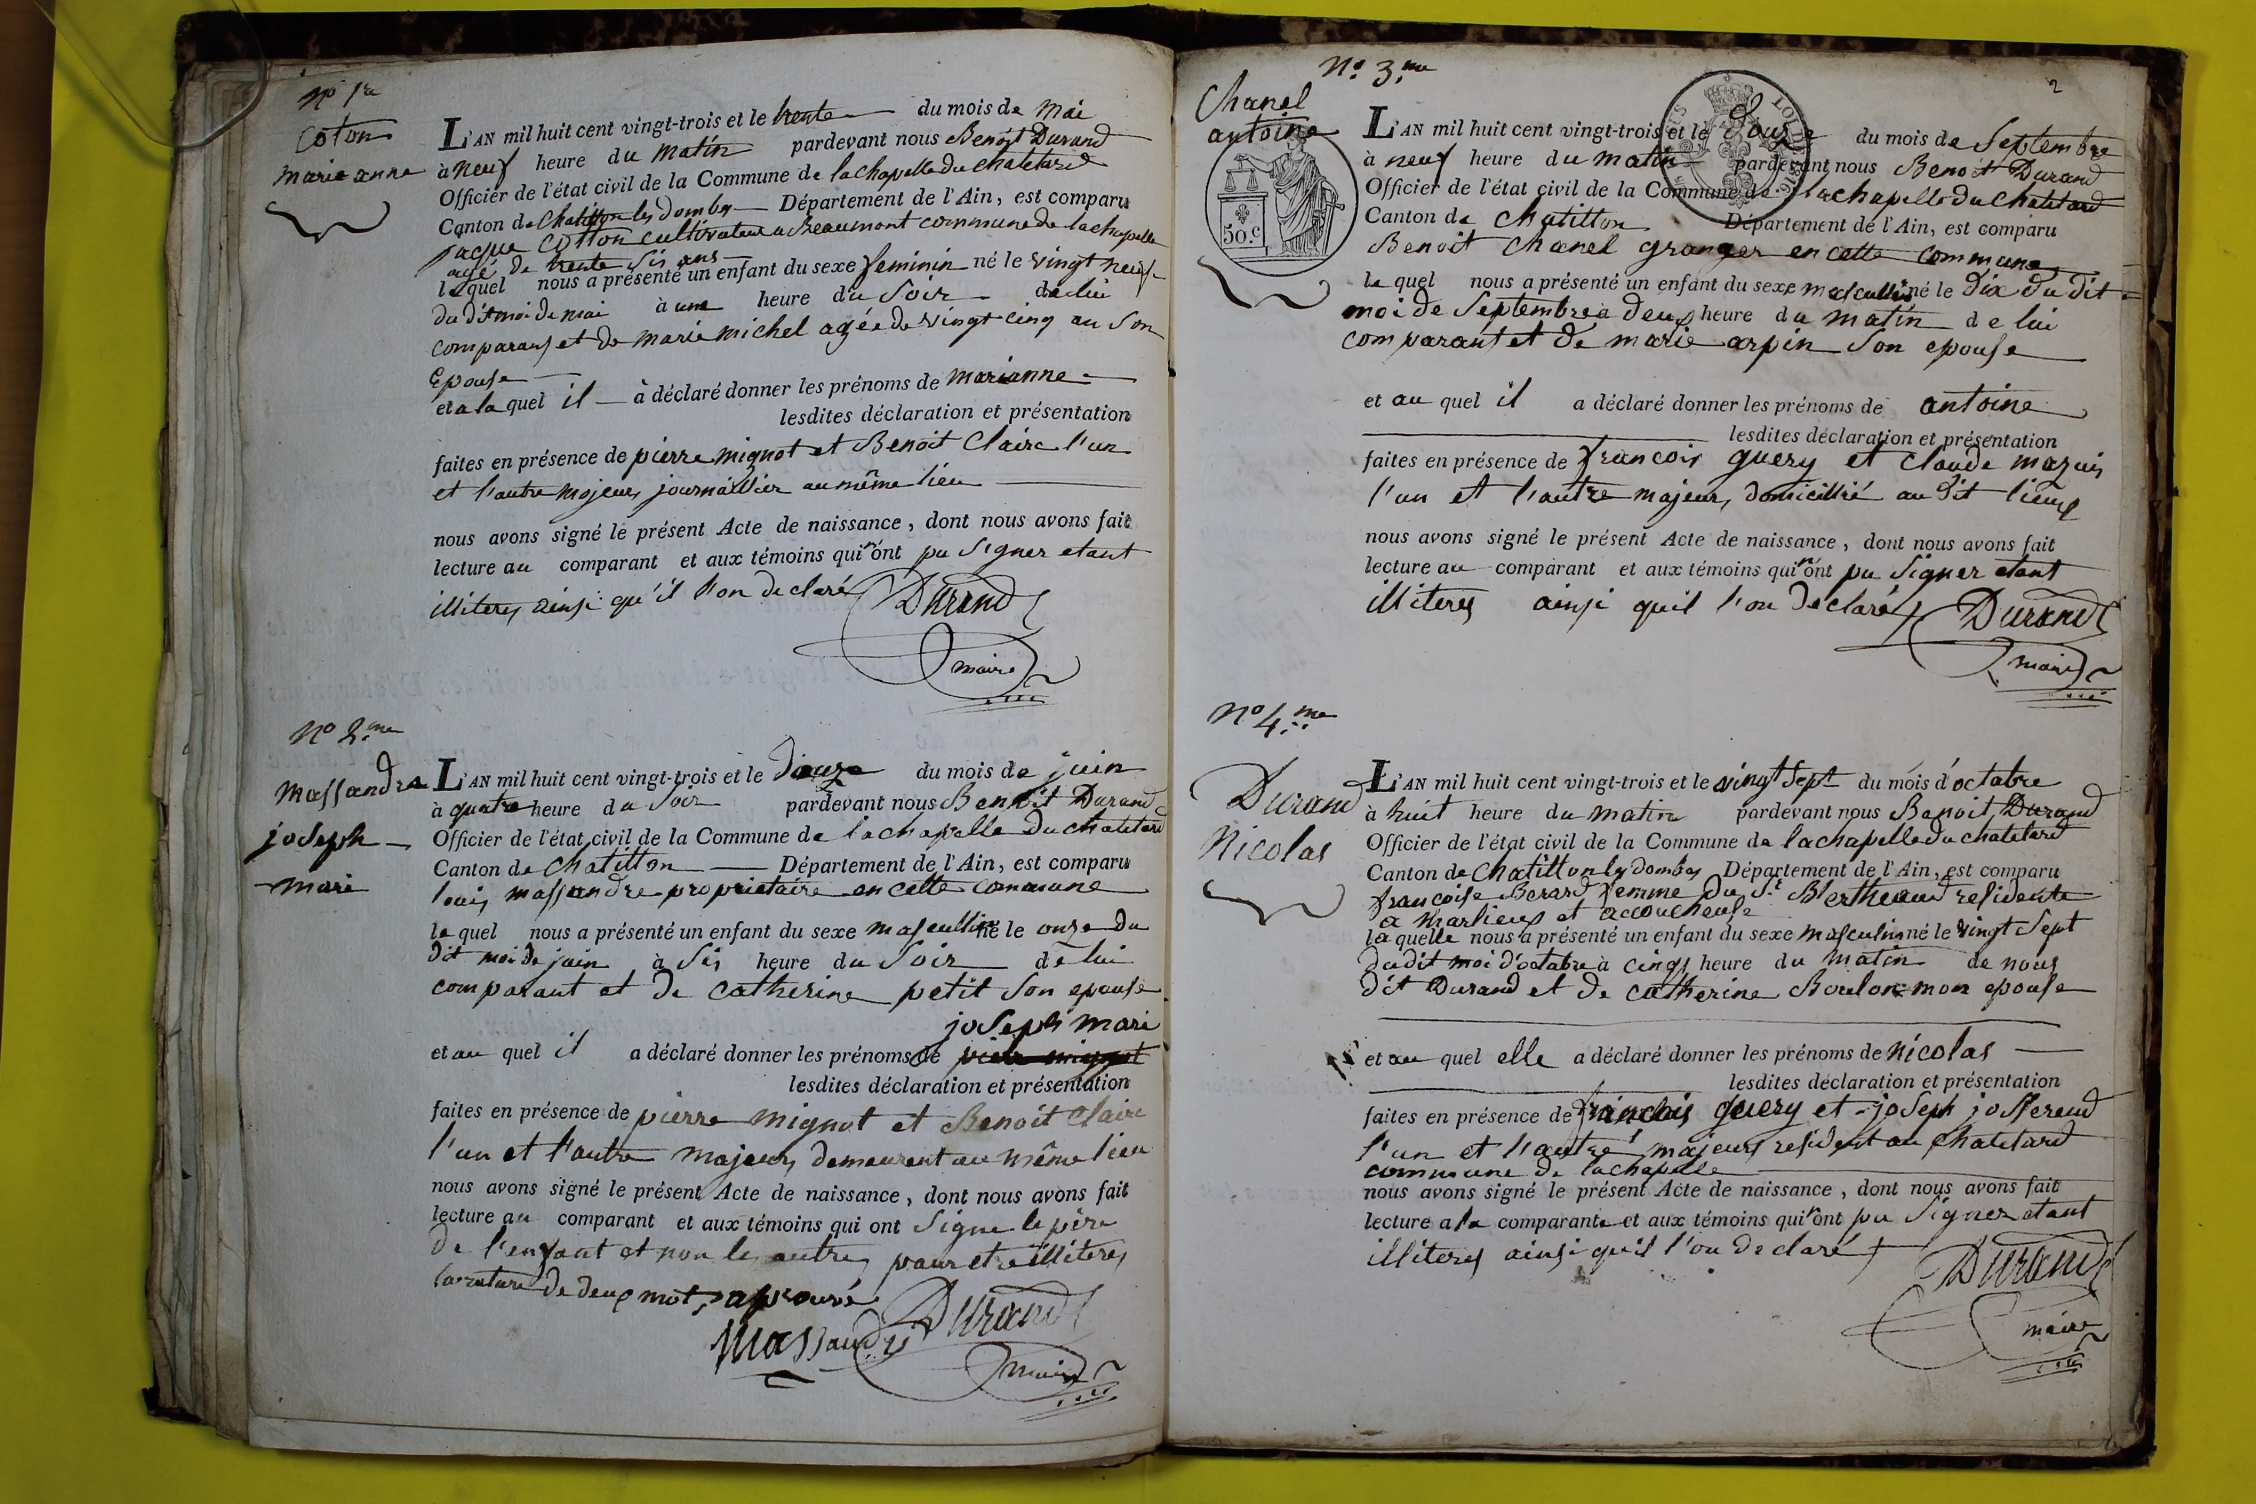 No 1re
Coton
marie anne
L'AN mil huit cent vingt-trois et le trente du mois de mai
à neuf heure du matin pardevant nous Benoit Durand
Officier de l'état civil de la Commune de lachapelle du chatelard
Canton de chatillon les dombes Département de l'Ain, est comparu
jacque Cotton cultivateur a Beaumont commune de lachapelle
agé de trente sis ans
le quel nous a présenté un enfant du sexe feminin né le vingt neuf
du dit moi de mai à une heure du Soir de lui
comparant et de marie michel agée de vingt cinq an son
Epouse
et a la quel il à déclaré donner les prénoms de marianne
lesdites déclaration et présentation
faites en présence de pierre mignot et Benoit Claire l'un
et l'autre majeurs journallier au même lieu
nous avons signé le présent Acte de naissance, dont nous avons fait
lecture au comparant et aux témoins qui n'ont pu signer etant
illiteres ainsi qu'il l'on declaré
Durand
maire
No 2.me
Massandre
joseph
mari
L'AN mil huit cent vingt-trois et le douze du mois de juin
à quatre heure du Soir pardevant nous Benoit Durand
Officier de l'état civil de la Commune de lachapelle du chatelard
Canton de chatillon Département de l'Ain, est comparu
louis massandre proprietaire en cette commune
le quel nous a présenté un enfant du sexe mascullin né le onze du
dit moi de juin à sis heure du Soir de lui
comparant et de catherine petit son epouse
joseph mari
et au quel il a déclaré donner les prénoms de pierre mignot
lesdites déclaration et présentation
faites en présence de pierre mignot et Benoit Claire
l'un et l'autre majeurs demeurent au même lieu
nous avons signé le présent Acte de naissance, dont nous avons fait
lecture au comparant et aux témoins qui ont signe le père
de l'enfant et non les autres pour etre illiteres
la rature de deux mots aprouvé
Massandre Durand
maire
2
No. 3.me
Chanel
antoine
50.c
L'AN mil huit cent vingt-trois et le douze du mois de Septembre
à neuf heure du matin pardevant nous Benoit Durand
Officier de l'état civil de la Commune de lachapelle du chatelard
Canton de chatillon Département de l'Ain, est comparu
Benoit Chanel granger en cette commune
le quel nous a présenté un enfant du sexe mascullin né le dix du dit
moi de Septembre à deux heure du matin de lui
comparant et de marie arpin son epouse
et au quel il a déclaré donner les prénoms de antoine
lesdites déclaration et présentation
faites en présence de francois guery et claude mazuis
l'un et l'autre majeurs domicillié au dit lieux
nous avons signé le présent Acte de naissance, dont nous avons fait
lecture au comparant et aux témoins qui n'ont pu signer etant
illiteres ainsi quil l'on declaré
Durand
maire
No 4.me
Durand
Nicolas
L'AN mil huit cent vingt-trois et le vingt sept du mois d'octobre
à huit heure du matin pardevant nous Benoit Durand
Officier de l'état civil de la Commune de lachapelle du chatelard
Canton de chatillon les dombes Département de l'Ain, est comparu
francoise Berard femme du Sr. Bertheaud residente
a marlieux et accoucheuse
la quelle nous a présenté un enfant du sexe masculin né le vingt sept
du dit moi d'octobre à cinq heure du matin de nous
dit Durand et de catherine Boulon mon epouse
et au quel elle a déclaré donner les prénoms de nicolas
lesdites déclaration et présentation
faites en présence de francois guery et joseph josserend
l'un et l'autre majeurs resident au chatelard
commune de lachapelle
nous avons signé le présent Acte de naissance, dont nous avons fait
lecture a la comparante et aux témoins qui n'ont pu signer etant
illiteres ainsi quil l'on declaré
Durand
maire